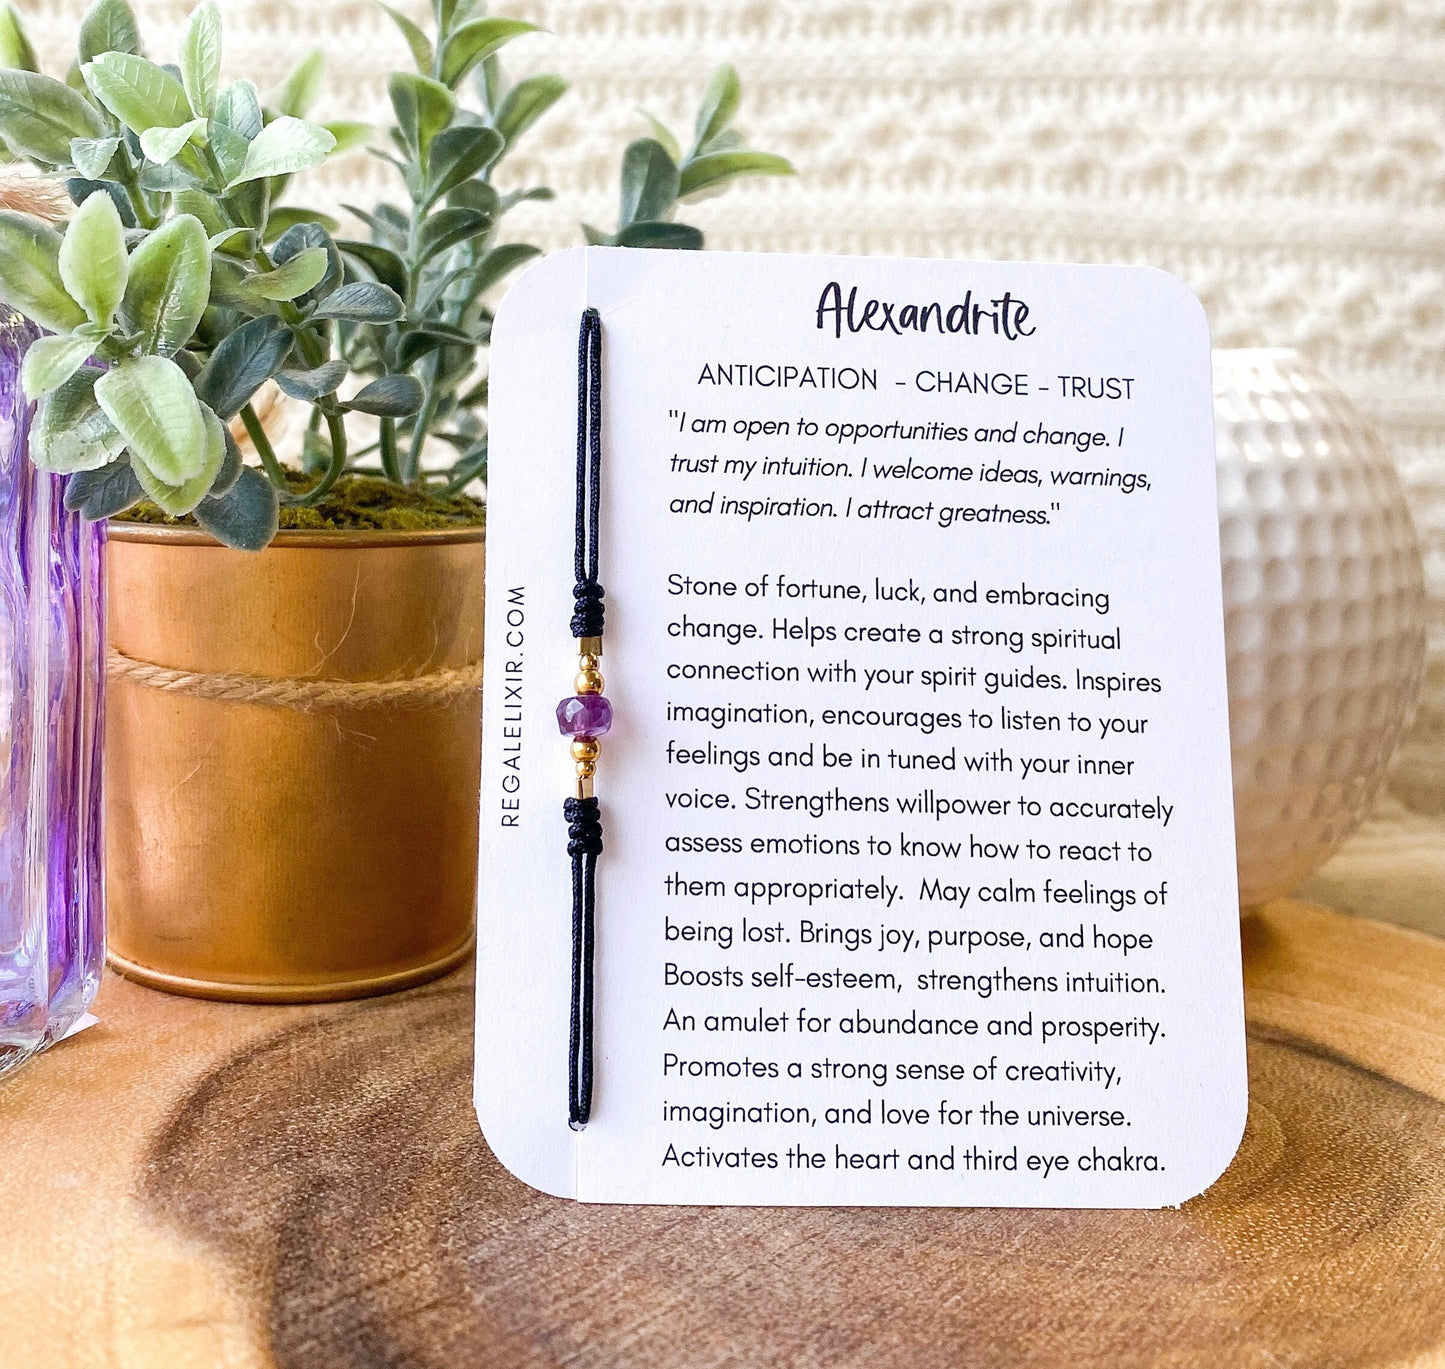 Alexandrite
ANTICIPATION - CHANGE - TRUST
"I am open to opportunities and change. I
trust my intuition. I welcome ideas, warnings,
and inspiration. I attract greatness."
Stone of fortune, luck, and embracing
change. Helps create a strong spiritual
connection with your spirit guides. Inspires
imagination, encourages to listen to your
feelings and be in tuned with your inner
voice. Strengthens willpower to accurately
assess emotions to know how to react to
them appropriately. May calm feelings of
being lost. Brings joy, purpose, and hope
Boosts self-esteem, strengthens intuition.
An amulet for abundance and prosperity.
Promotes a strong sense of creativity,
imagination, and love for the universe.
Activates the heart and third eye chakra.
REGALELIXIR.COM